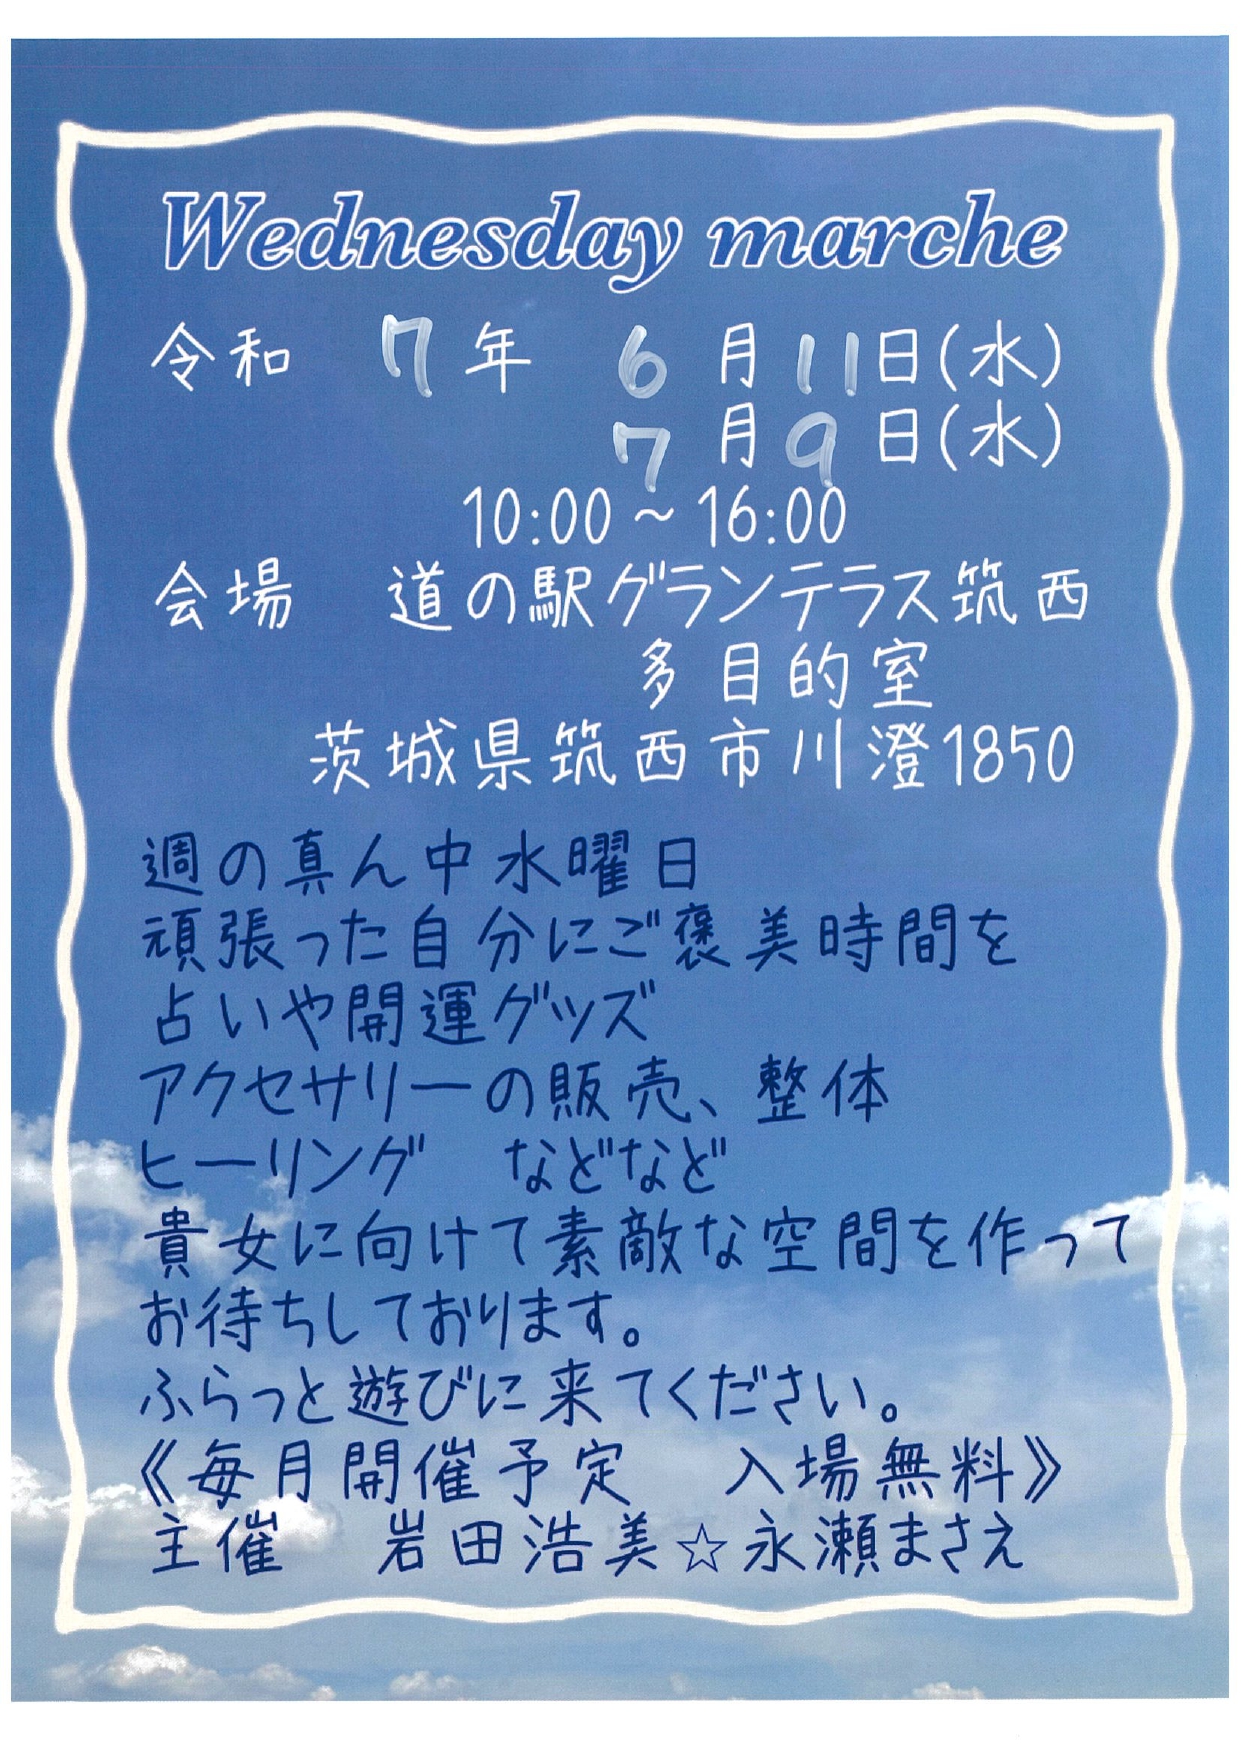 Wednesday marche
令和　7年　6月11日(水)
7月9日(水)
10:00～16:00
会場　道の駅グランテラス筑西
多目的室
茨城県筑西市川澄1850
週の真ん中水曜日
頑張った自分にご褒美時間を
占いや開運グッズ
アクセサリーの販売、整体
ヒーリング　などなど
貴女に向けて素敵な空間を作って
お待ちしております。
ふらっと遊びに来てください。
《毎月開催予定　入場無料》
主催　岩田浩美☆永瀬まさえ